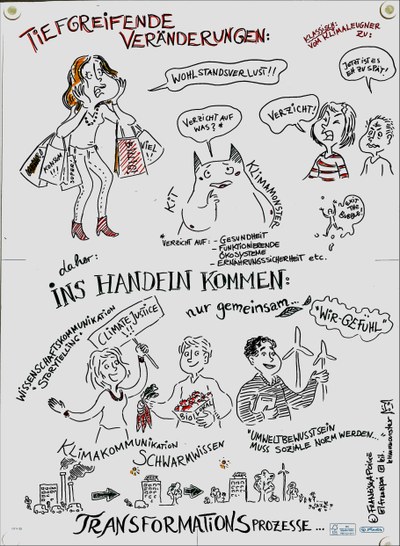 TIEFGREIFENDE
VERÄNDERUNGEN:
KLASSISCH:
VOM KLIMALEUGNER
ZU:
WOHLSTANDSVERLUST!!
JETZT IST ES
EH ZU SPÄT!
VERZICHT AUF
WAS? *
VERZICHT!
KONSUM
!!!
VIEL
KIT
KLIMAMONSTER
EXIT
THE
BUBBLE!
* VERZICHT AUF: - GESUNDHEIT
- FUNKTIONIERENDE
ÖKOSYSTEME
- ERNÄHRUNGSSICHERHEIT etc.
daher:
INS HANDELN KOMMEN:
nur gemeinsam...
"WIR-GEFÜHL"
WISSENSCHAFTSKOMMUNIKATION
"STORYTELLING"
CLIMATE JUSTICE
!!!
BIO
KLIMAKOMMUNIKATION
SCHWARMWISSEN
"UMWELTBEWUSSTSEIN
MUSS SOZIALE NORM WERDEN...
TRANSFORMATIONSPROZESSE...